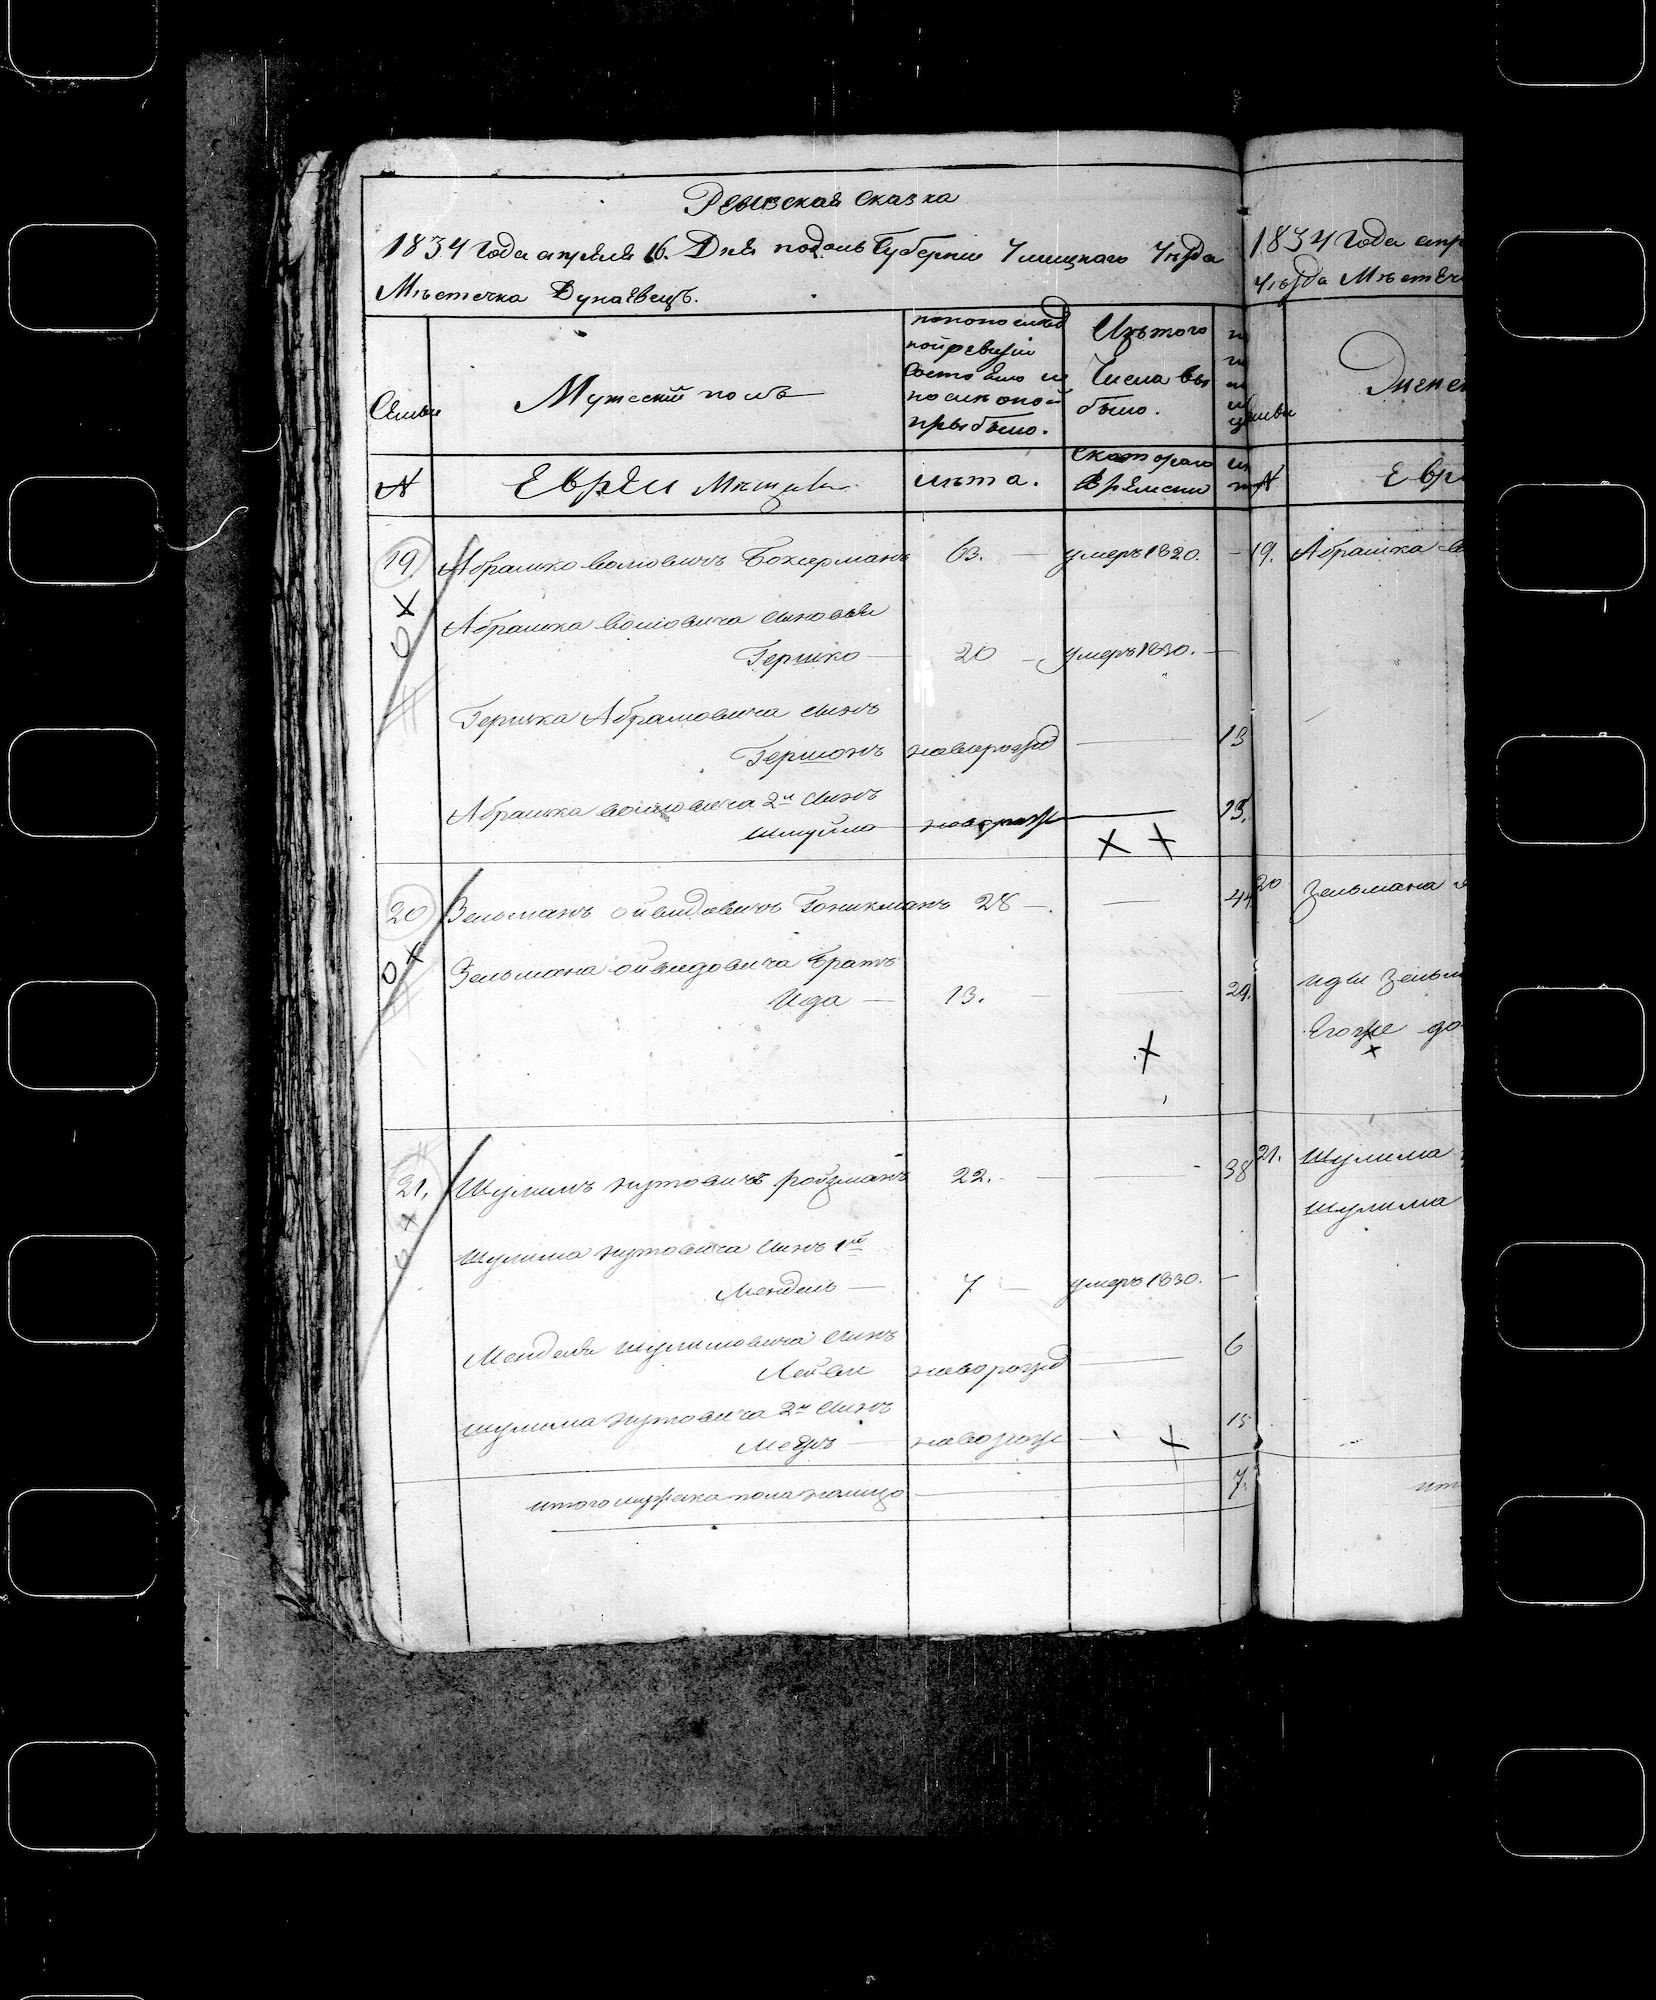 Ревизская сказка
1834 года апреля 16. Дня подоль Губернии Ушицкаго Уезда
Мъстечка Дунаевецъ.
Семьи
Мужеский полъ
по последн
пой ревизии
состояло и
после оной
прыбыло.
Изътого
Числа вы
было.
№
Евреи
лъта.
Скотораго
времени
19.
Абрамко Волковичъ Боксерманъ 63. умеръ 1820.
Абрамка сыновья
Гершко 20 умеръ 1830.
Гершка Абрамовича сынъ
Гершонъ новорожд 13
Абрамка 2й сынъ
Шмуйло новорож 13.
20
Зельманъ Ойвидовичъ Гоникманъ 28 44
Зельмана Ойвидовича братъ
Ида 13. 29.
21.
Шулимъ Нутовичъ Ройзманъ 22. 38
Шулима Нутовича сынъ 1й
Мендель 7 умеръ 1830.
Менделя Шулимовича сынъ
Лейви новорожд 6
Шулима Нутовича 2й сынъ
новорож 15
итого мужска пола налицо 7.
1834 года апр
уезда Мъстеч
Женск
№
Евр
19. Абрашка
20 Зельмана
Иды Зельм
Егоже до
21. Шулима
Шулима
ит